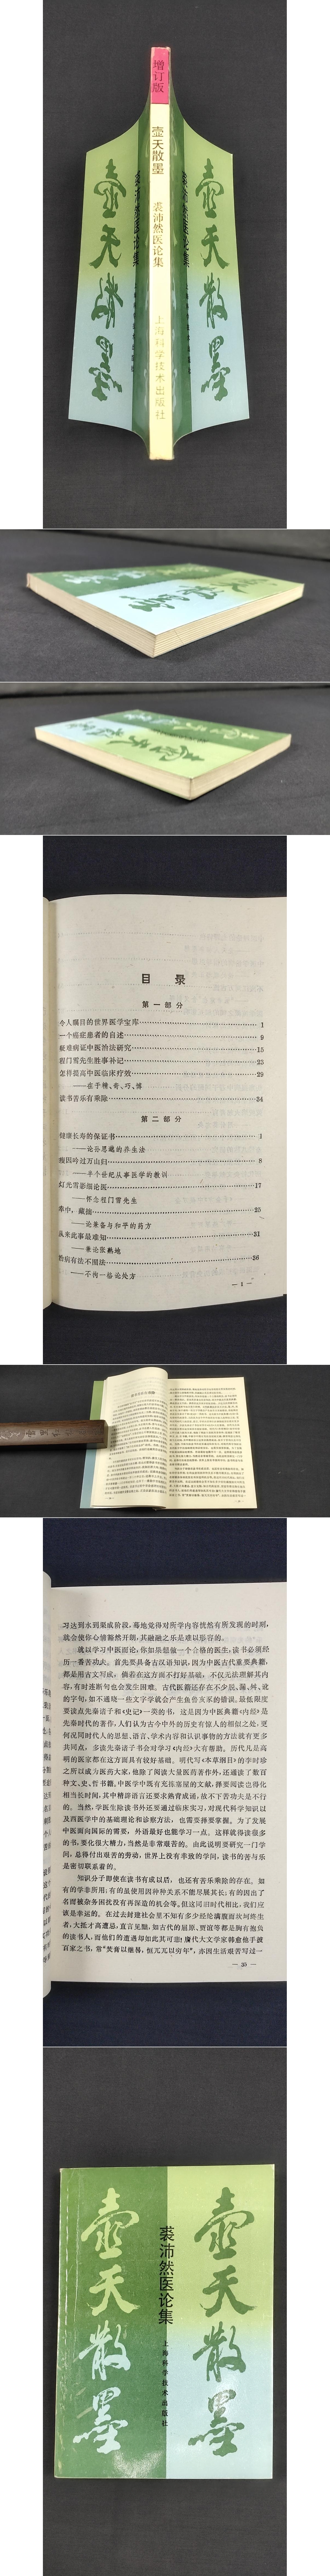 增订版
壶天散墨
裘沛然医论集
上海科学技术出版社
壶天散墨
壶天散墨
目 录
第一部分
令人瞩目的世界医学宝库 1
一个癌症患者的自述 9
疑难病证中医治法研究 15
程门雪先生胜事补记 23
怎样提高中医临床疗效 29
——在于精、奇、巧、博
读书苦乐有乘除 34
第二部分
健康长寿的保证书 1
——论孙思邈的养生法
瘦因吟过万山归 8
——半个世纪从事医学的教训
灯光雪影细论医 17
——怀念程门雪先生
牵中,藏拙 25
——论兼备与和平的药方
从来此事最难知 31
——兼论张鹅地
治病有法不囿法 36
——不拘一格论处方
— 1 —
习达到水到渠成阶段,蓦地觉得对所学内容恍然有所发现的时刻,
就会使你心情豁然开朗,其融融之乐是难以形容的。
就以学习中医而论,你如果想做一个合格的医生,读书必须经
历一番苦功夫。首先要具备古汉语知识,因为中医古代重要典籍,
都是用古文写成,倘若在这方面不打好基础,不仅无法理解其内
容,有时连断句也会发生困难。古代医籍还存在不少夺、脱、舛、讹
的字句,如不通晓一些文字学就会产生鱼鲁亥豕的错误。最低限度
要读点先秦诸子和《史记》一类的书,这是因为中医典籍《内经》是
先秦时代的著作,人们认为古今中外的历史有惊人的相似之处,更
何况同时代人的思想、语言、学术内容和认识事物的方法就有更多
共同点,多读先秦诸子书对学习《内经》大有帮助。历代凡是高
明的医家都在这方面具有较好基础。明代写《本草纲目》的李时珍
之所以成为医药大家,他除了阅读大量医药著作外,还通读了数百
种文、史、哲书籍。中医学中既有充栋塞屋的文献,择要阅读也得化
相当长时间,其中精辟语言还要求熟背成诵,故不下苦功夫是不行
的。当然,学医生除读书外还要通过临床实习,对现代科学知识以
及西医学中的基础理论和诊察方法,也需要择要掌握。为了发展
中医面向国际的需要,外语最好也能学习一点。这样就得读很多
的书,要化很大精力,当然是非常艰苦的。由此说明要研究一门学
问,总得付出艰苦的劳动,世界上没有幸致的学问,读书的苦与乐
是密切联系着的。
知识分子即使在读书有成以后,也还有苦乐乘除的存在。如
有的学非所用;有的虽使用因种种关系不能尽展其长;有的因出了
名而被杂务困扰没有再深造的机会等。但这同旧时代相比,我们应
该是幸运的。在过去封建社会里不知有多少经纶满腹而坎坷终生
者,大抵才高遭忌,直言见黜,如古代的屈原、贾谊等都是胸有抱负
的读书人,而他们的遭遇却如此其可悲!唐代大文学家韩愈他手披
百家之书,常“焚膏以继晷,恒兀兀以穷年”,亦因生活艰苦写过一
— 35 —
壶天散墨
裘沛然医论集
上海科学技术出版社
壶天散墨